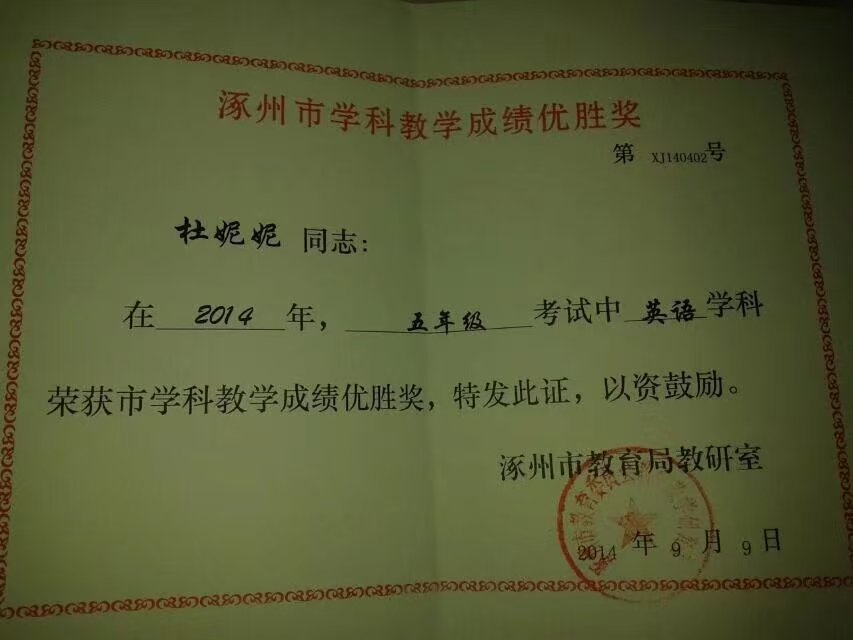 涿州市学科教学成绩优胜奖
第 XJ140402号
杜妮妮 同志:
在 2014 年, 五年级 考试中 英语 学科
荣获市学科教学成绩优胜奖, 特发此证, 以资鼓励。
涿州市教育局教研室
2014 年 9 月 9 日